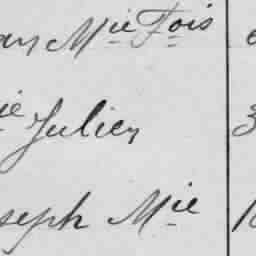 an Mie Fois
ie Julien 3
seph Mie 1